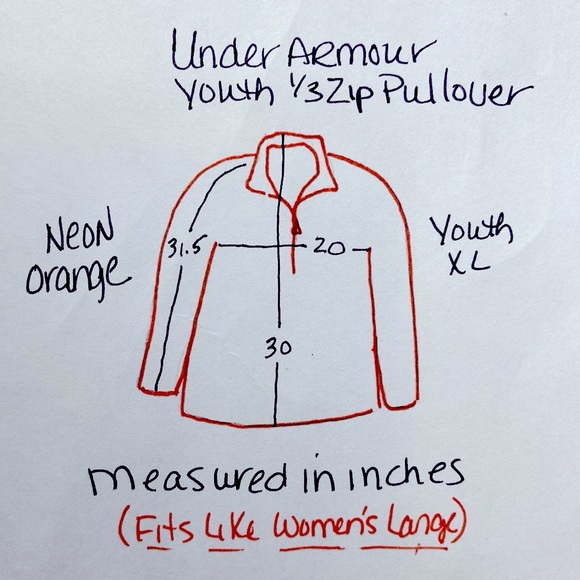 Under Armour
Youth 1/3 Zip Pullover
Neon
Orange
Youth
XL
31.5
20
30
Measured in inches
(Fits Like Women's Large)